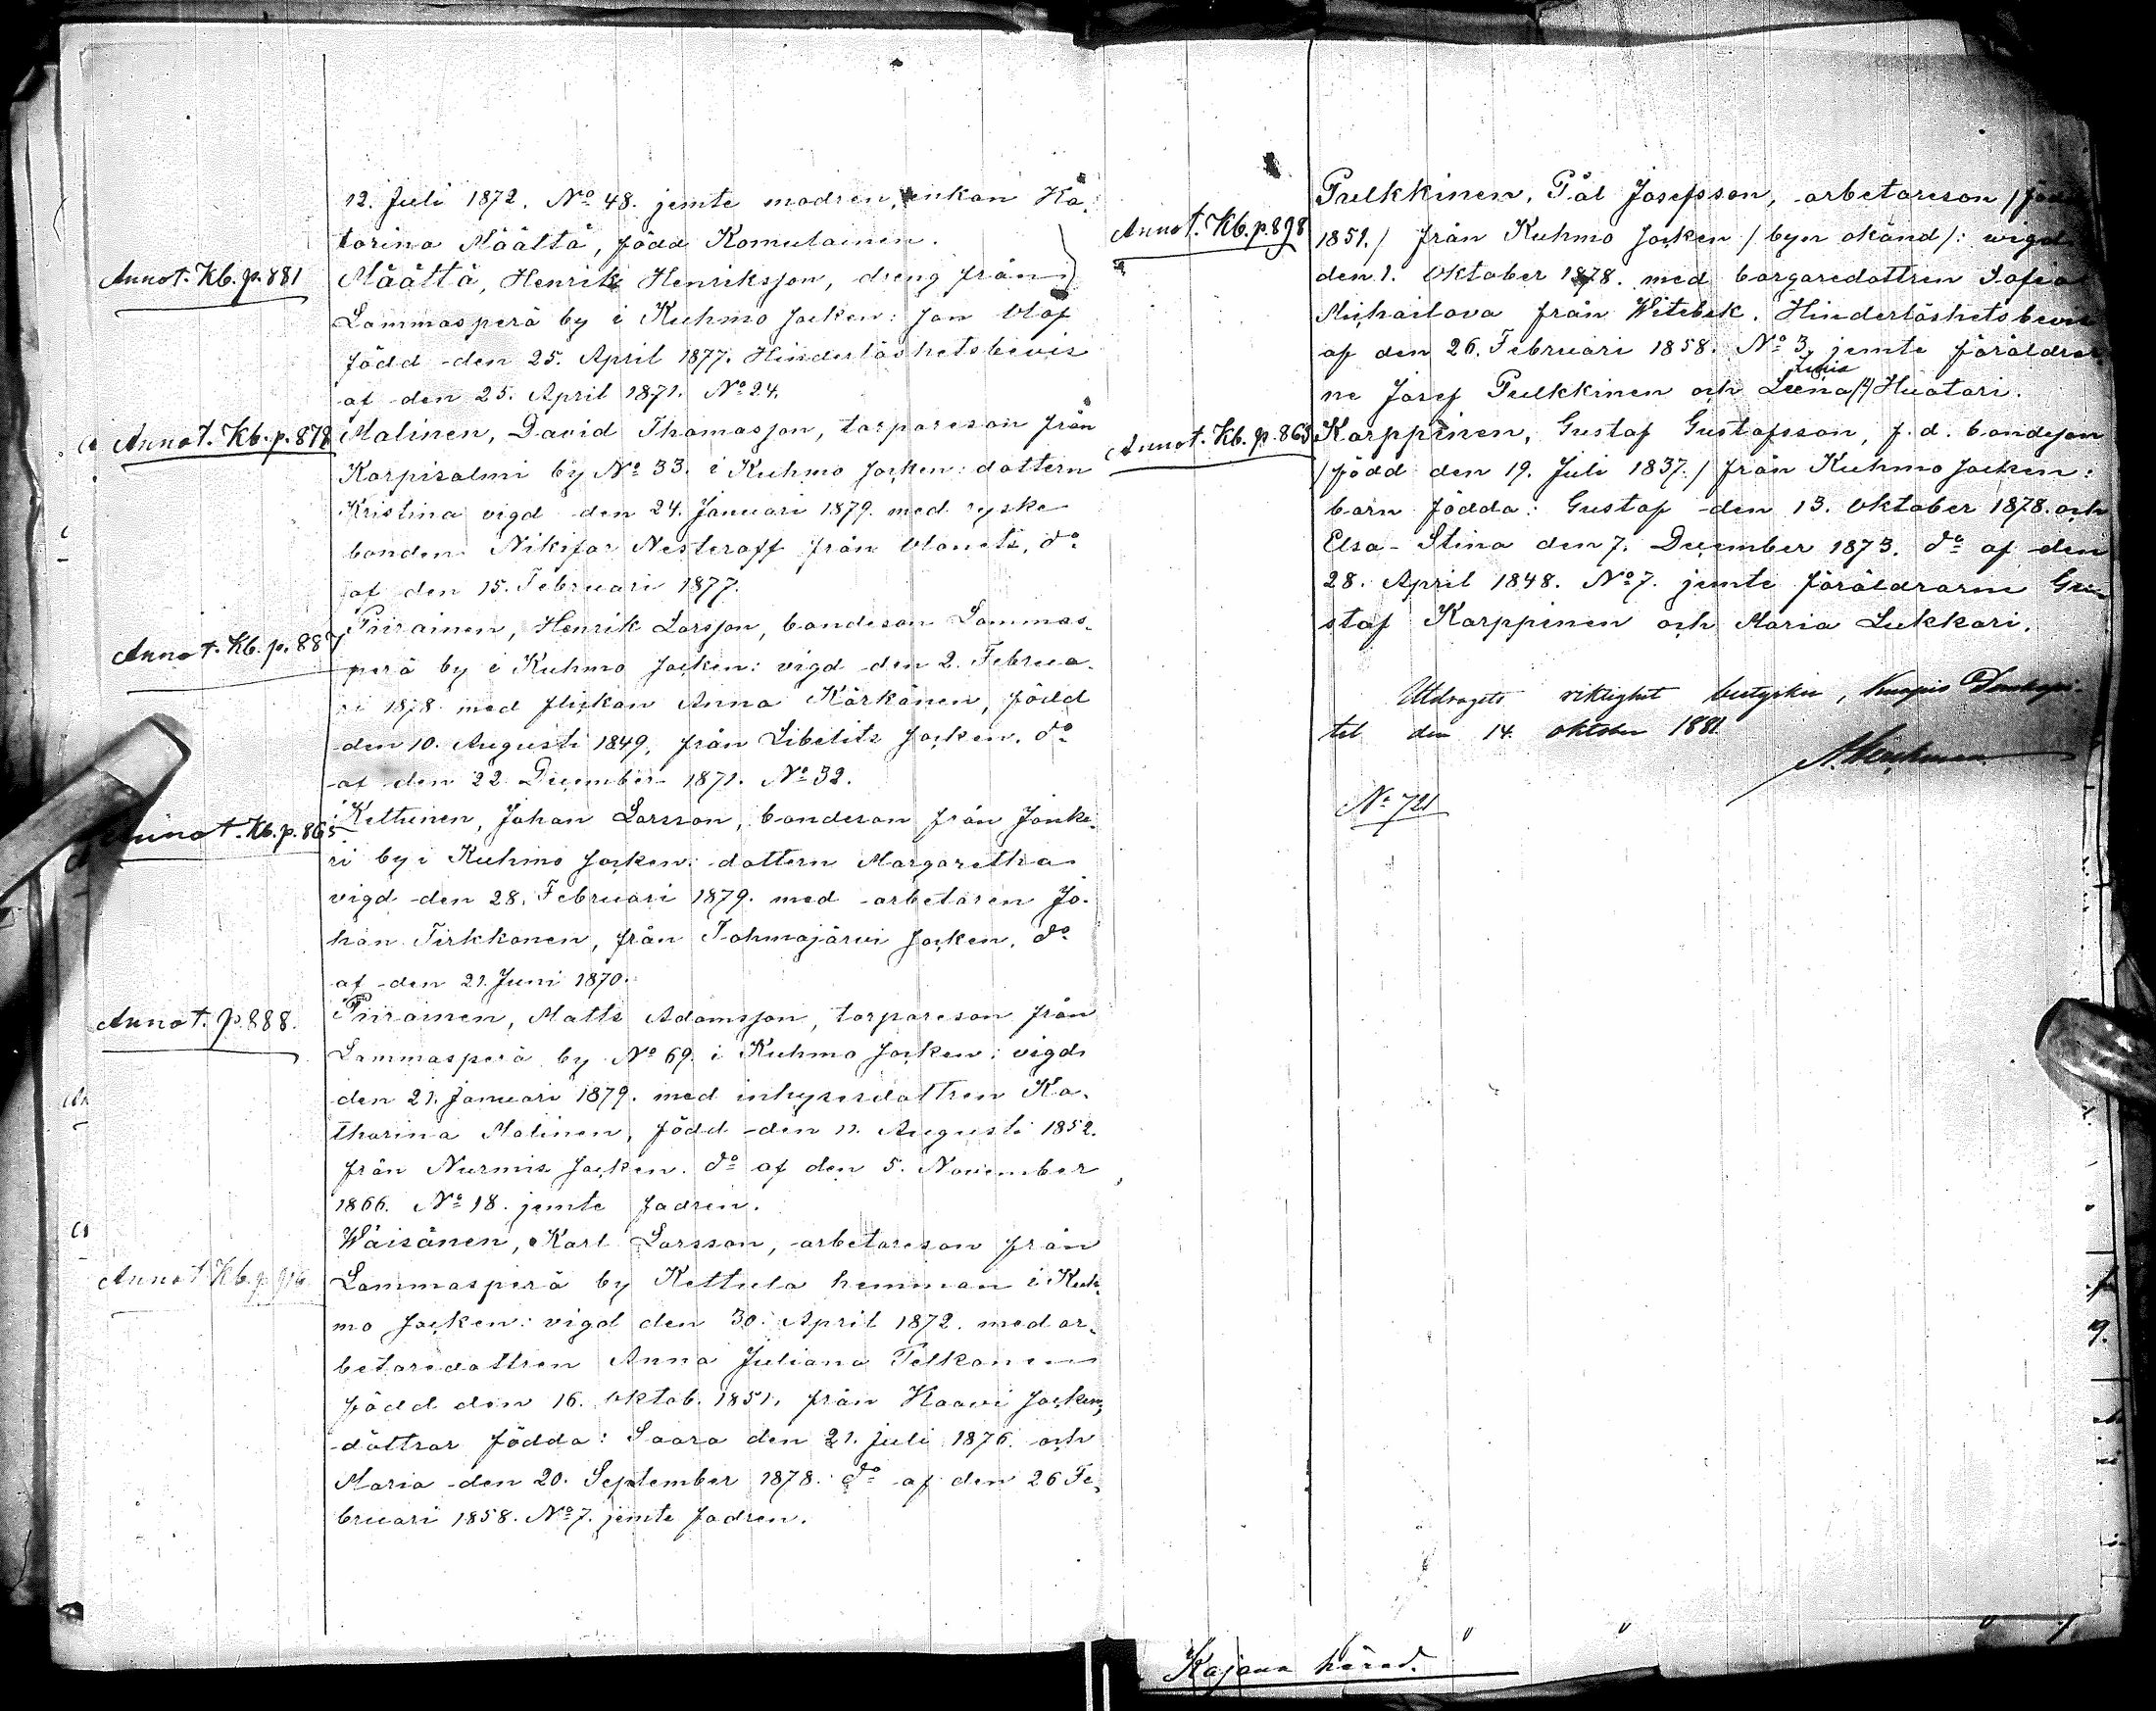 12. Juli 1872. No 48. jemte modren, enkan Ka-
tarina Määttä, född Komulainen.
Annot. Kb. p. 881
Määttä, Henrik Henriksson, dreng från
Lammasperä by i Kuhmo socken: son Olof
född den 25. April 1877. Hinderlöshetsbevis
af den 25. April 1871. No 24.
Annot. Kb. p. 878
Malinen, David Thomasson, torpareson från
Korpisalmi by No 33. i Kuhmo socken: dottern
Kristina vigd den 24. Januari 1879. med ryske
bonden Nikifor Nesteroff från Olonets, do
af den 15. Februari 1877.
Annot. Kb. p. 887
Piirainen, Henrik Larsson, bondeson Lammas-
perä by i Kuhmo socken: vigd den 2. Februa-
ri 1878 med flickan Anna Kärkänen, född
den 10. Augusti 1849, från Libelits socken, do
af den 22 December 1871. No 32.
Annot. Kb. p. 865
Keltunen, Johan Larsson, bondeson från Jonke-
ri by i Kuhmo socken: dottern Margaretha
vigd den 28. Februari 1879. med arbetaren Jo-
han Tirkkonen, från Tohmajärvi socken, do
af den 21. Juni 1870.
Annot. p. 888.
Piirainen, Matts Adamsson, torpareson från
Lammasperä by No 69. i Kuhmo socken: vigd
den 21. Januari 1879. med inhysesdottren Ka-
tharina Malinen, född den 11. Augusti 1852.
från Nurmis socken. do af den 5. November
1866. No 18. jemte fadren.
Wäisänen, Karl Larsson, arbetareson från
Annot. Kb. p. 916
Lammasperä by Kettula hemman i Kuh-
mo socken: vigd den 30. April 1872. med ar-
betaredottren Anna Juliana Pelkonen
född den 16. Oktob. 1851, från Kaavi socken,
döttrar födda: Saara den 21. juli 1876. och
Maria den 20. September 1878. do af den 26 Fe-
bruari 1858. No 7. jemte fadren.
Pulkkinen, Pål Josefsson, arbetareson /född
Annot. Kb. p. 898
1851./ från Kuhmo socken /byn okänd/: wigd
den 1. Oktober 1878. med borgaredottren Sofia
Michailova från Witebsk. Hinderlöshetsbevis
af den 26. Februari 1858. No 3, jemte föräldrar-
ne Josef Pulkkinen och Leena Huotari.
Annot. Kb. p. 863
Karppinen, Gustaf Gustafsson, f. d. bondeson
/född den 19. Juli 1837./ från Kuhmo socken:
barn födda: Gustaf den 13. Oktober 1878. och
Elsa-Stina den 7. December 1873. do af den
28. April 1848. No 7. jemte föräldrarne Gu-
staf Karppinen och Maria Lukkari.
Utdragets riktighet bestyrkes, Kuopio Domkapi-
tel den 14. oktober 1881
No 721
Kajana härad.